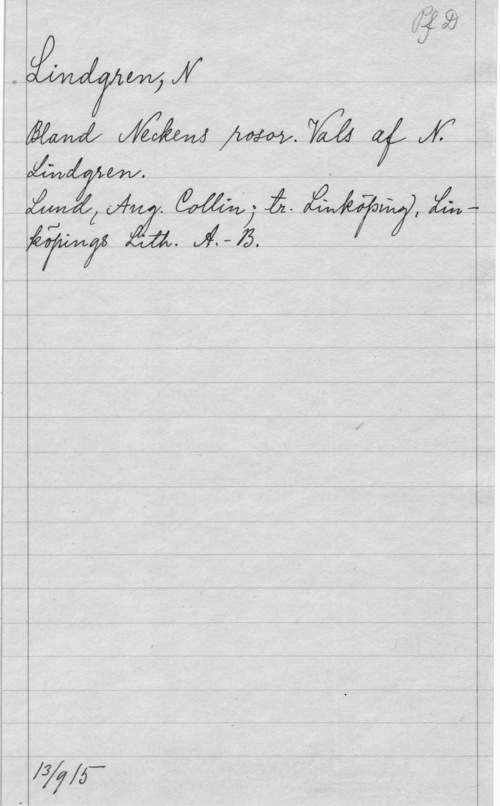 Pf D
Lindgren, N
Bland Neckens rosor. Vals af N.
Lindgren.
Lund, Aug. Collin; tr. Linköping, Lin-
köpings Lith. A.-B.
13/9 15